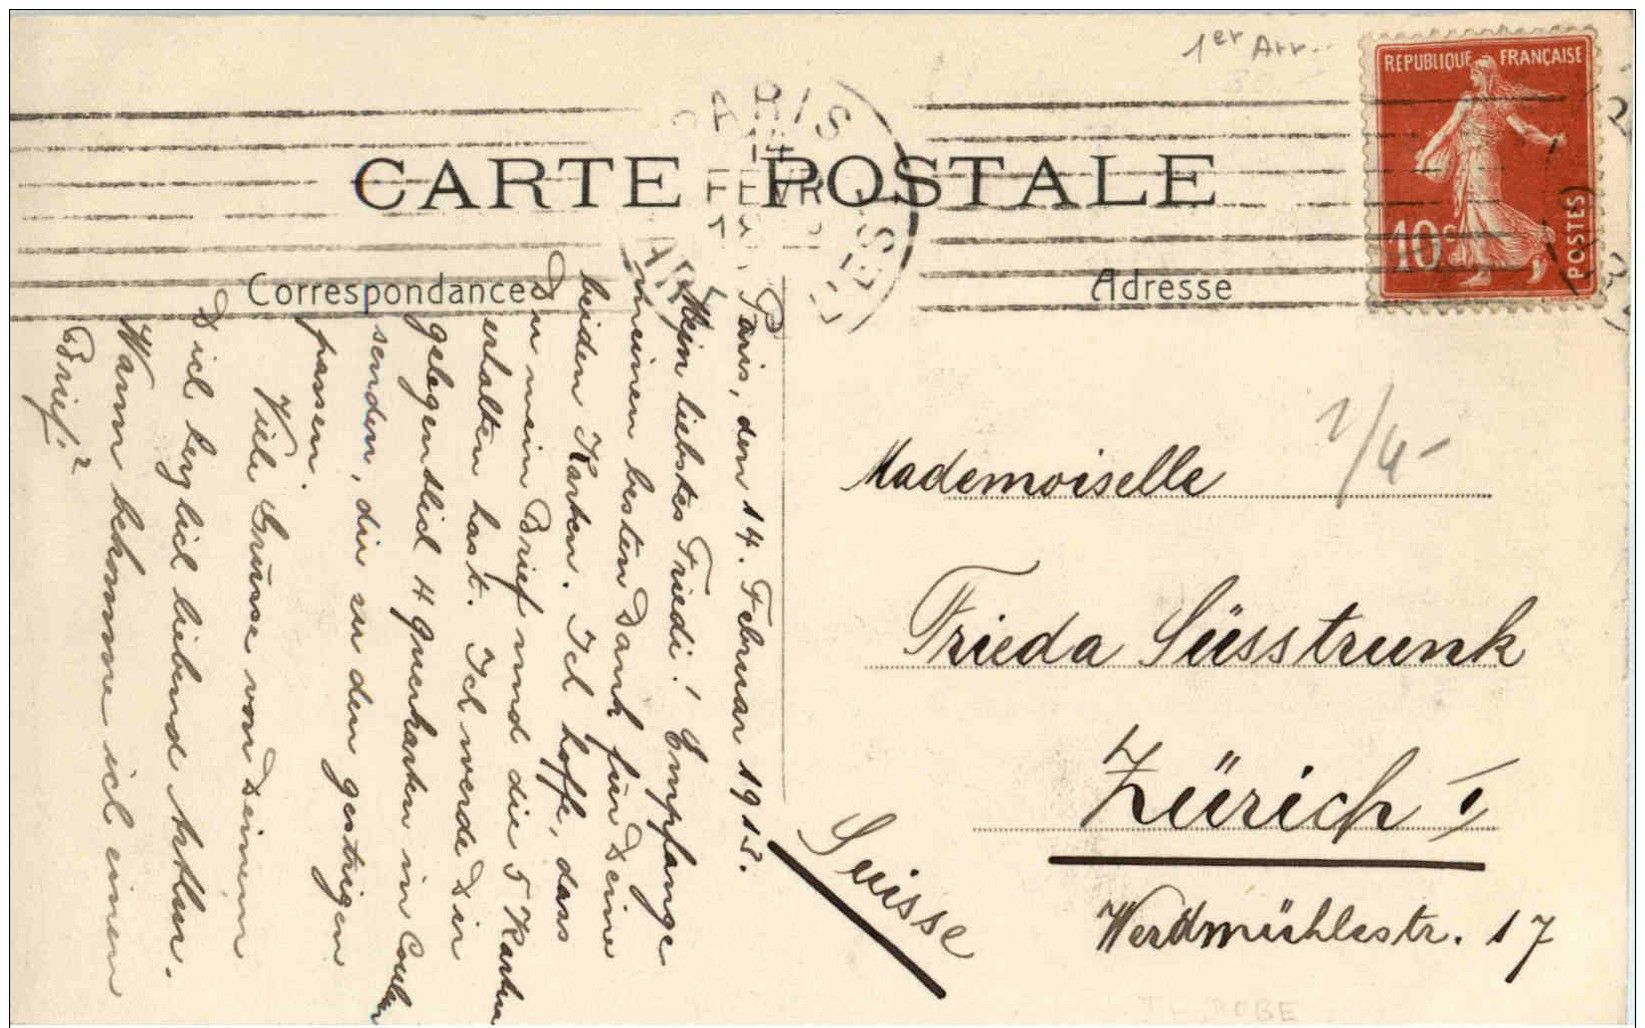 1er Arr..
REPUBLIQUE FRANÇAISE
10c
POSTES
PARIS
14
FEVR
CARTE POSTALE
Correspondance
Adresse
Paris, den 14. Februar 1912.
Mein liebstes Friedi! Empfange
meinen besten Dank für Deine
beiden Karten. Ich hoffe, dass
Du mein Brief und die 5 Karten
erhalten hast. Ich werde Dir
gelegentlich 4 Querkarten in Couleur
senden, die zu den gestrigen
passen.
Viele Grüsse von Deinem
Dich herzlich liebend
Wann bekomme ich einen
Brief?
2/4-
Mademoiselle
Frieda Süsstrunk
Zürich I
Werdmühlestr. 17
Suisse